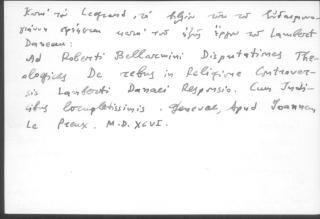 Κατά τόν Legrand, τό βιβλίον τοῦτο
ὑπό τοῦ Lambert
Daneau:
Ad Roberti Bellarmini Disputationes Theo-
logicas De rebus in Religione Controver-
sis Lamberti Danaei Responsio. Cum Indi-
cibus locupletissimis. Genevae, Apud Joannem
Le Preux. M.D.XCVI.